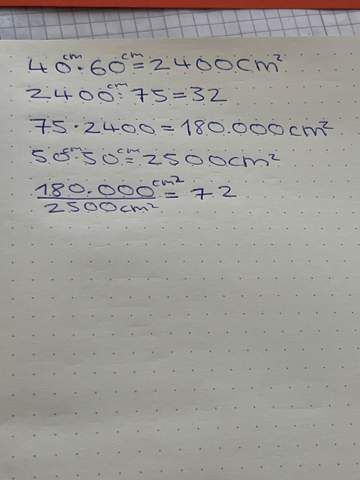 40cm·60cm=2400cm²
2400cm:75=32
75·2400=180.000cm²
50cm·50cm=2500cm²
180.000cm²
2500cm² = 72